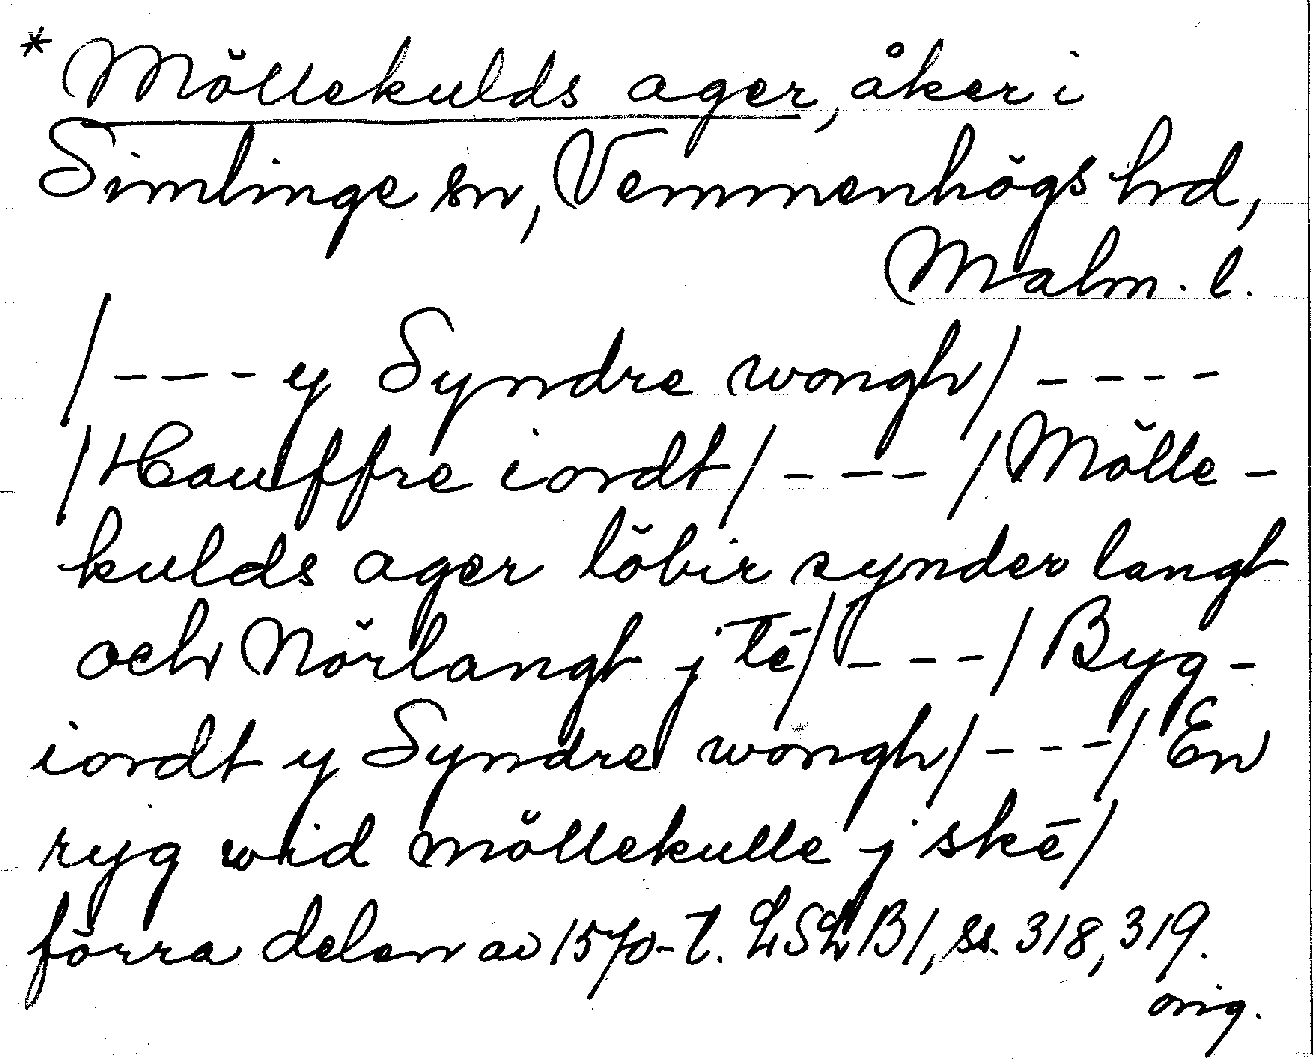 * Möllekulds ager, åker i
Simlinge sn, Vemmenhögs hrd,
Malm. l.
/---- y Syndre wongh/ ----
/Hauffre iordt/ --- /Mölle-
kulds ager löbir synder langt
och Nörlangt j tē/ --- / Byg-
iordt y Syndre wongh/ --- / En
ryg wid möllekulle j skē/
förra delen av 1570-t. LSLB1, ss. 318, 319.
orig.